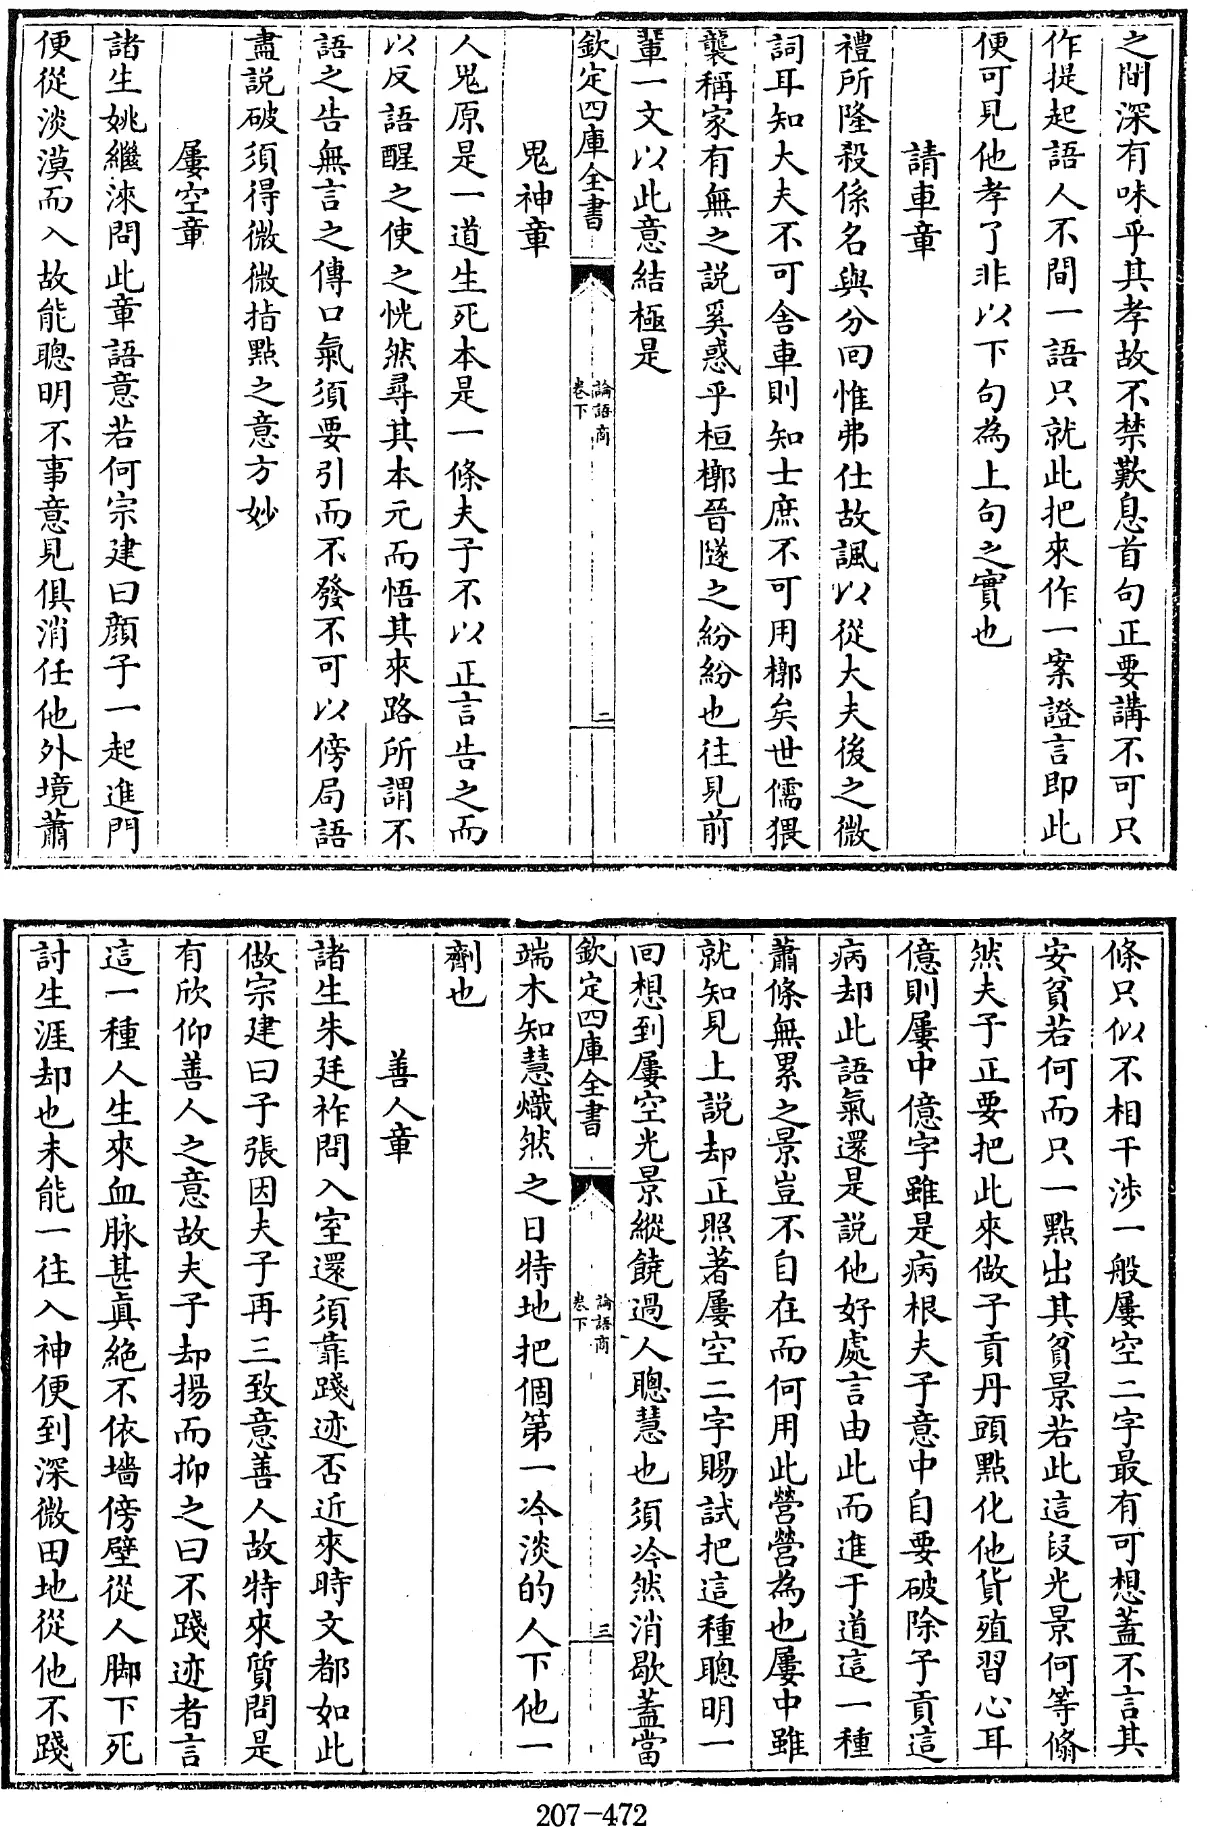 之間深有味乎其孝故不禁歎息首句正要講不可只
作提起語人不間一語只就此把來作一案證言即此
便可見他孝了非以下句為上句之實也
請車章
禮所隆殺係名與分回惟弗仕故諷以從大夫後之微
詞耳知大夫不可舍車則知士庶不可用槨矣世儒猥
襲稱家有無之說奚惑乎桓槨晉隧之紛紛也往見前
輩一文以此意結極是
欽定四庫全書
論語商
卷下
二
鬼神章
人鬼原是一道生死本是一條夫子不以正言告之而
以反語醒之使之恍然尋其本元而悟其來路所謂不
語之告無言之傳口氣須要引而不發不可以傍局語
盡說破須得微微指點之意方妙
屢空章
諸生姚繼淶問此章語意若何宗建曰顏子一起進門
便從淡漠而入故能聰明不事意見俱消任他外境蕭
條只似不相干涉一般屢空二字最有可想蓋不言其
安貧若何而只一點出其貧景若此這段光景何等翛
然夫子正要把此來做子貢丹頭點化他貨殖習心耳
億則屢中億字雖是病根夫子意中自要破除子貢這
病却此語氣還是說他好處言由此而進于道這一種
蕭條無累之景豈不自在而何用此營營為也屢中雖
就知見上說却正照著屢空二字賜試把這種聰明一
回想到屢空光景縱饒過人聰慧也須冷然消歇蓋當
欽定四庫全書
論語商
卷下
三
端木知慧熾然之日特地把個第一冷淡的人下他一
劑也
善人章
諸生朱廷祚問入室還須靠踐迹否近來時文都如此
做宗建曰子張因夫子再三致意善人故特來質問是
有欣仰善人之意故夫子却揚而抑之曰不踐迹者言
這一種人生來血脉甚真絕不依墻傍壁從人脚下死
討生涯却也未能一往入神便到深微田地從他不踐
207-472